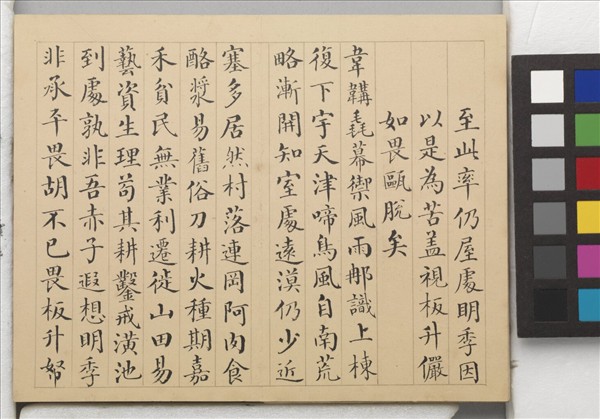 至此率仍屋處明季因
以是為苦盖視板升儼
如畏甌脫矣
韋韝毳幕禦風雨那識上棟
復下宇天津啼鳥風自南荒
略漸開知室處遠漠仍少近
塞多居然村落連岡阿肉食
酪漿易舊俗刀耕火種期嘉
禾貧民無業利遷徙山田易
藝資生理苟其耕鑿戒潢池
到處孰非吾赤子遐想明季
非承平畏胡不已畏板升帑